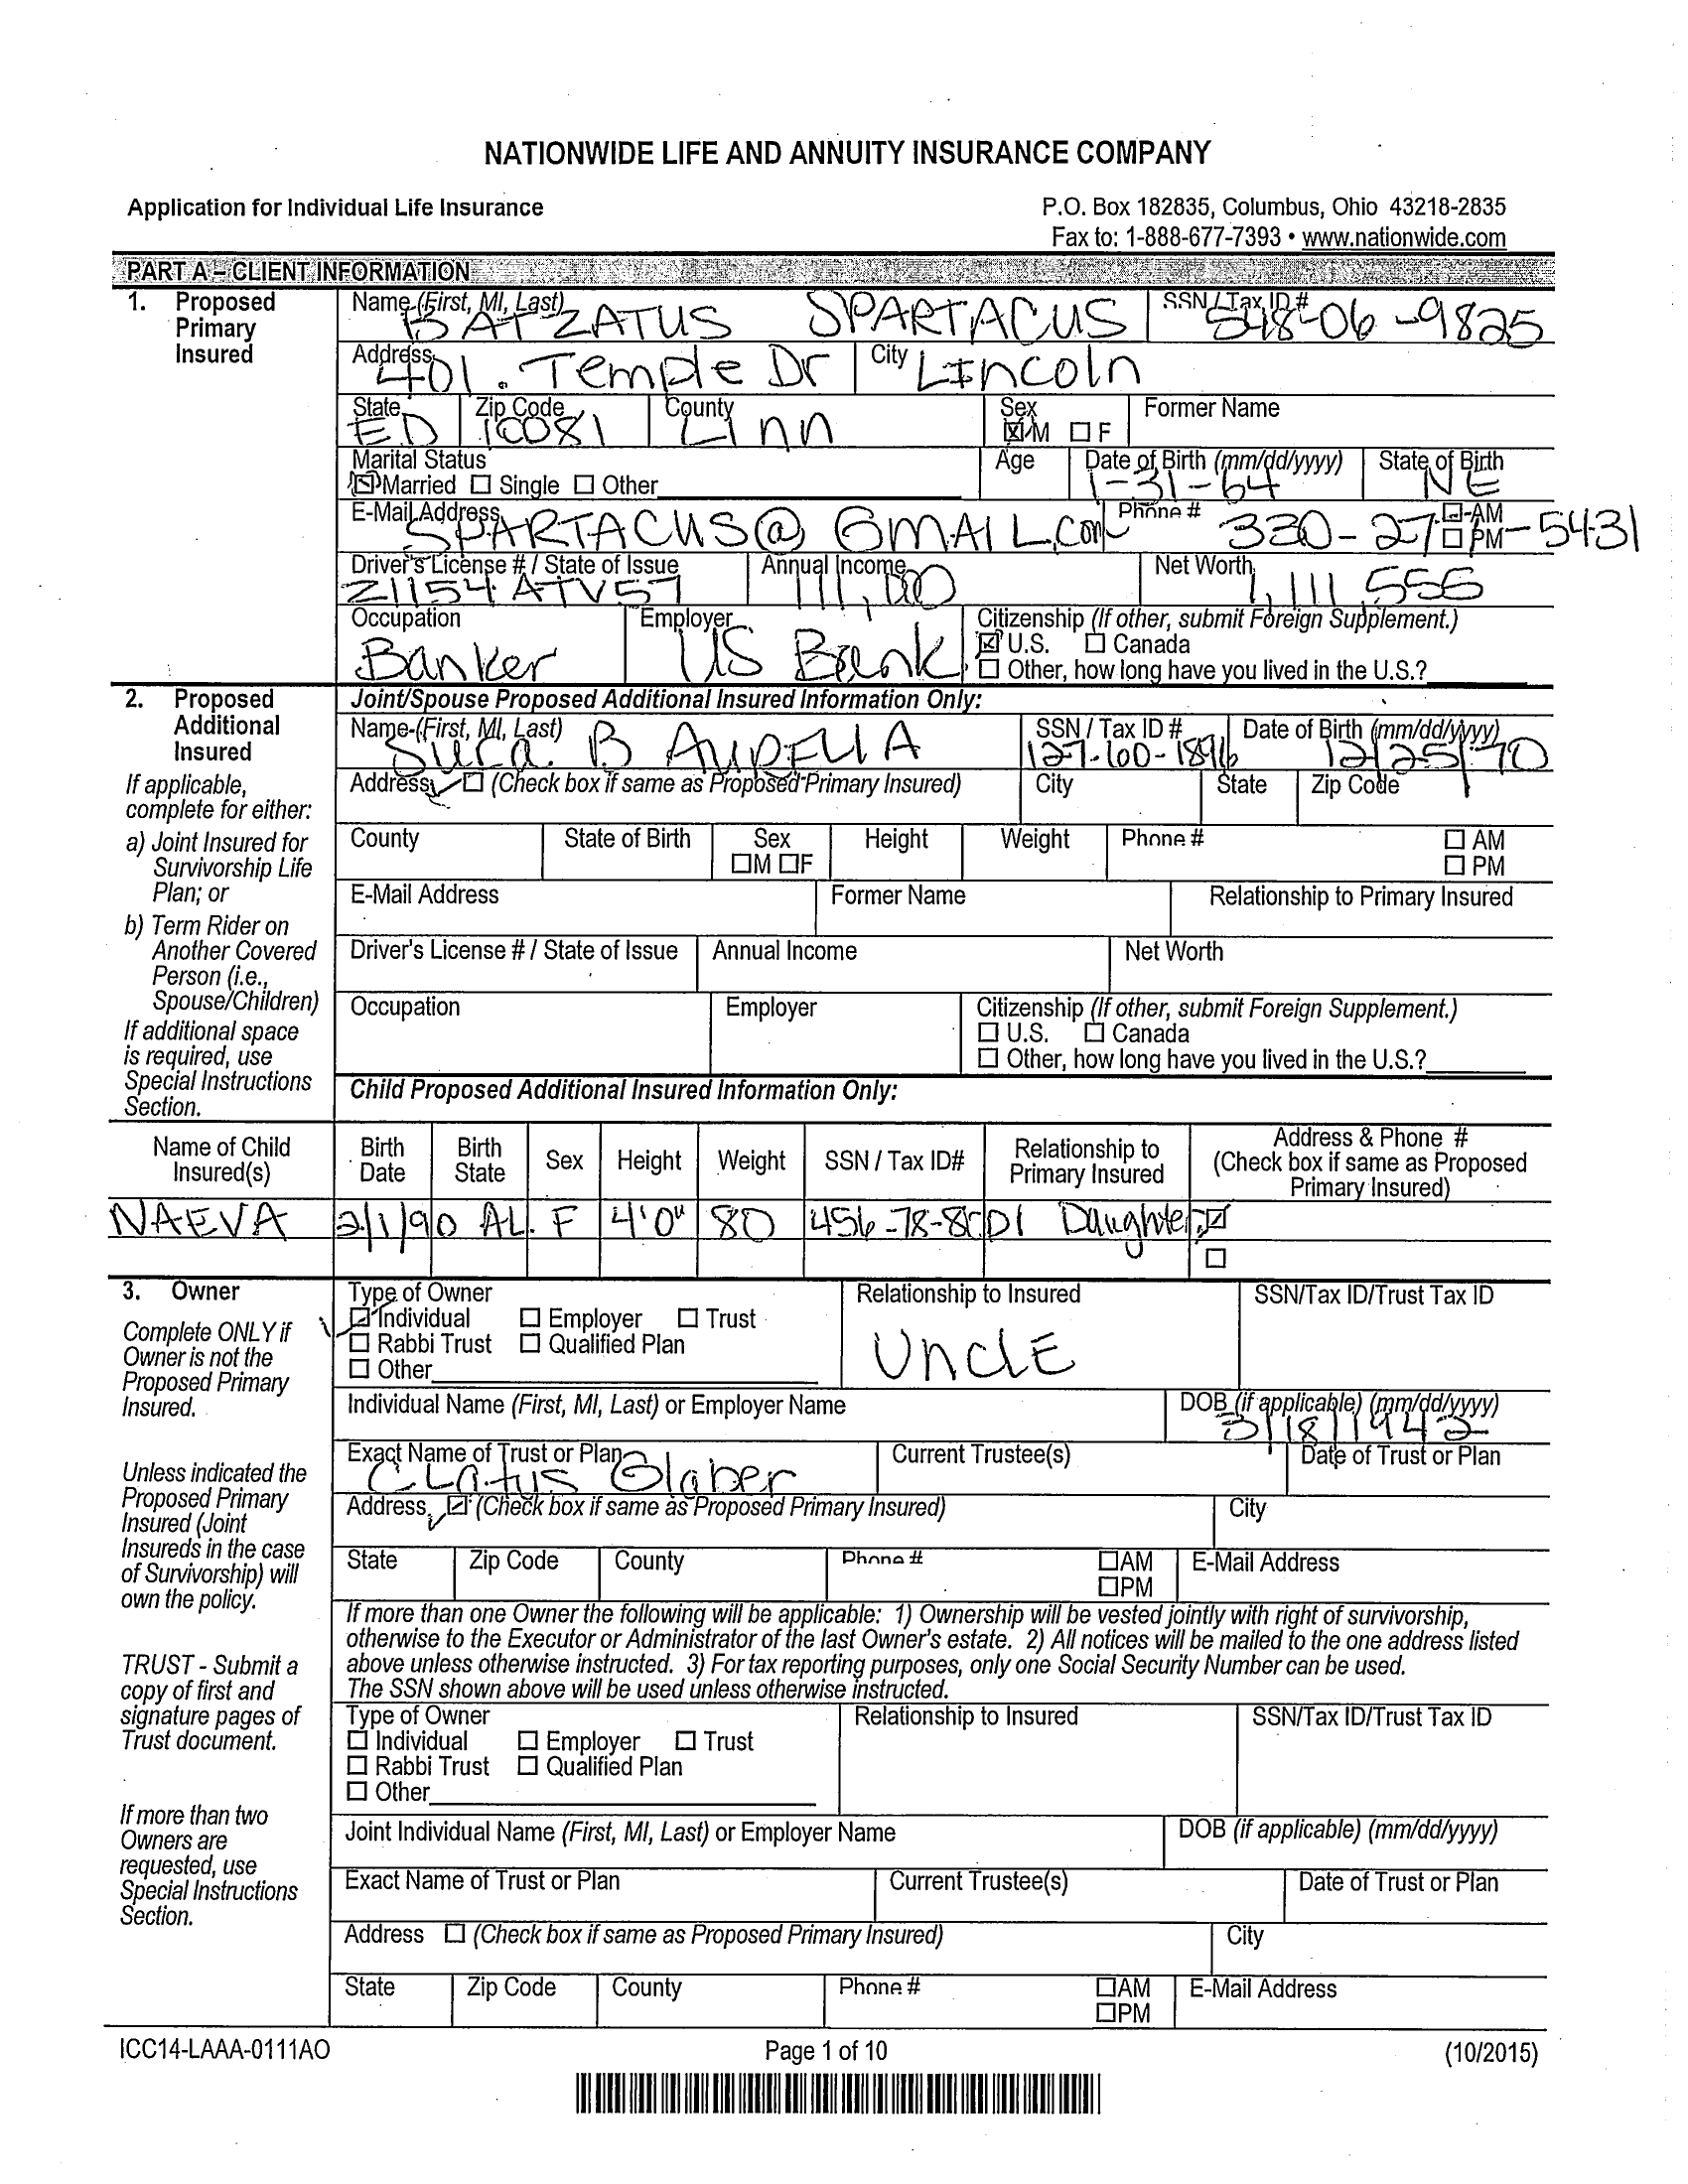 NATIONWIDE LIFE AND ANNUITY INSURANCE COMPANY
Application for Individual Life Insurance
P.O. Box 182835, Columbus, Ohio 43218-2835
Fax to: 1-888-677-7393 • www.nationwide.com
PART A – CLIENT INFORMATION
1. Proposed Primary Insured
Name (First, MI, Last) BATZATUS SPARTACUS SSN / Tax ID # 548-06-9825
Address 401. Temple Dr City LIncoln
State ED Zip Code 10081 County Linn Sex ☒ M ☐ F Former Name
Marital Status ☒ Married ☐ Single ☐ Other Age Date of Birth (mm/dd/yyyy) 1-31-64 State of Birth NE
E-Mail Address SPARTACUS@GMAIL.com Phone # 330-271-5431 ☑ AM ☐ PM
Driver's License # / State of Issue Z1154ATV57 Annual Income 111,000 Net Worth 1,111,555
Occupation Banker Employer US Bank Citizenship (If other, submit Foreign Supplement.)
☒ U.S. ☐ Canada
☐ Other, how long have you lived in the U.S.?
2. Proposed Additional Insured
If applicable, complete for either:
a) Joint Insured for Survivorship Life Plan; or
b) Term Rider on Another Covered Person (i.e., Spouse/Children)
If additional space is required, use Special Instructions Section.
Joint/Spouse Proposed Additional Insured Information Only:
Name (First, MI, Last) Sura B AURELIA SSN / Tax ID # 127-60-1896 Date of Birth (mm/dd/yyyy) 12/25/70
Address ☐ (Check box if same as Proposed Primary Insured) City State Zip Code
County State of Birth Sex ☐M ☐F Height Weight Phone # ☐ AM ☐ PM
E-Mail Address Former Name Relationship to Primary Insured
Driver's License # / State of Issue Annual Income Net Worth
Occupation Employer Citizenship (If other, submit Foreign Supplement.)
☐ U.S. ☐ Canada
☐ Other, how long have you lived in the U.S.?
Child Proposed Additional Insured Information Only:
Name of Child Insured(s) Birth Date Birth State Sex Height Weight SSN / Tax ID# Relationship to Primary Insured Address & Phone # (Check box if same as Proposed Primary Insured)
NAEVA 2/1/90 AL. F 4'0" 80 456-78-8001 Daughter ☑
☐
3. Owner
Complete ONLY if Owner is not the Proposed Primary Insured.
Unless indicated the Proposed Primary Insured (Joint Insureds in the case of Survivorship) will own the policy.
TRUST - Submit a copy of first and signature pages of Trust document.
If more than two Owners are requested, use Special Instructions Section.
Type of Owner Relationship to Insured SSN/Tax ID/Trust Tax ID
☑ Individual ☐ Employer ☐ Trust
☐ Rabbi Trust ☐ Qualified Plan UnclE
☐ Other
Individual Name (First, MI, Last) or Employer Name DOB (if applicable) (mm/dd/yyyy) 3/18/1942
Exact Name of Trust or Plan CLAtus Glaber Current Trustee(s) Date of Trust or Plan
Address ☑ (Check box if same as Proposed Primary Insured) City
State Zip Code County Phone # ☐AM ☐PM E-Mail Address
If more than one Owner the following will be applicable: 1) Ownership will be vested jointly with right of survivorship,
otherwise to the Executor or Administrator of the last Owner's estate. 2) All notices will be mailed to the one address listed
above unless otherwise instructed. 3) For tax reporting purposes, only one Social Security Number can be used.
The SSN shown above will be used unless otherwise instructed.
Type of Owner Relationship to Insured SSN/Tax ID/Trust Tax ID
☐ Individual ☐ Employer ☐ Trust
☐ Rabbi Trust ☐ Qualified Plan
☐ Other
Joint Individual Name (First, MI, Last) or Employer Name DOB (if applicable) (mm/dd/yyyy)
Exact Name of Trust or Plan Current Trustee(s) Date of Trust or Plan
Address ☐ (Check box if same as Proposed Primary Insured) City
State Zip Code County Phone # ☐AM ☐PM E-Mail Address
ICC14-LAAA-0111AO Page 1 of 10 (10/2015)